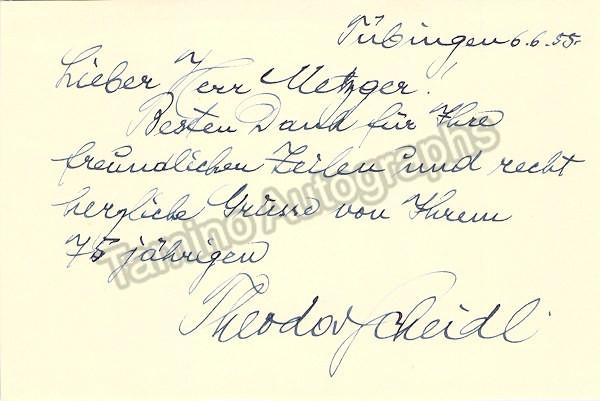 Tübingen 6.6.55.
Lieber Herr Metzger!
Besten Dank für Ihre
freundlichen Zeilen und recht
herzliche Grüsse von Ihrem
75 jährigen
Theodor Scheidl.
Tamino Autographs